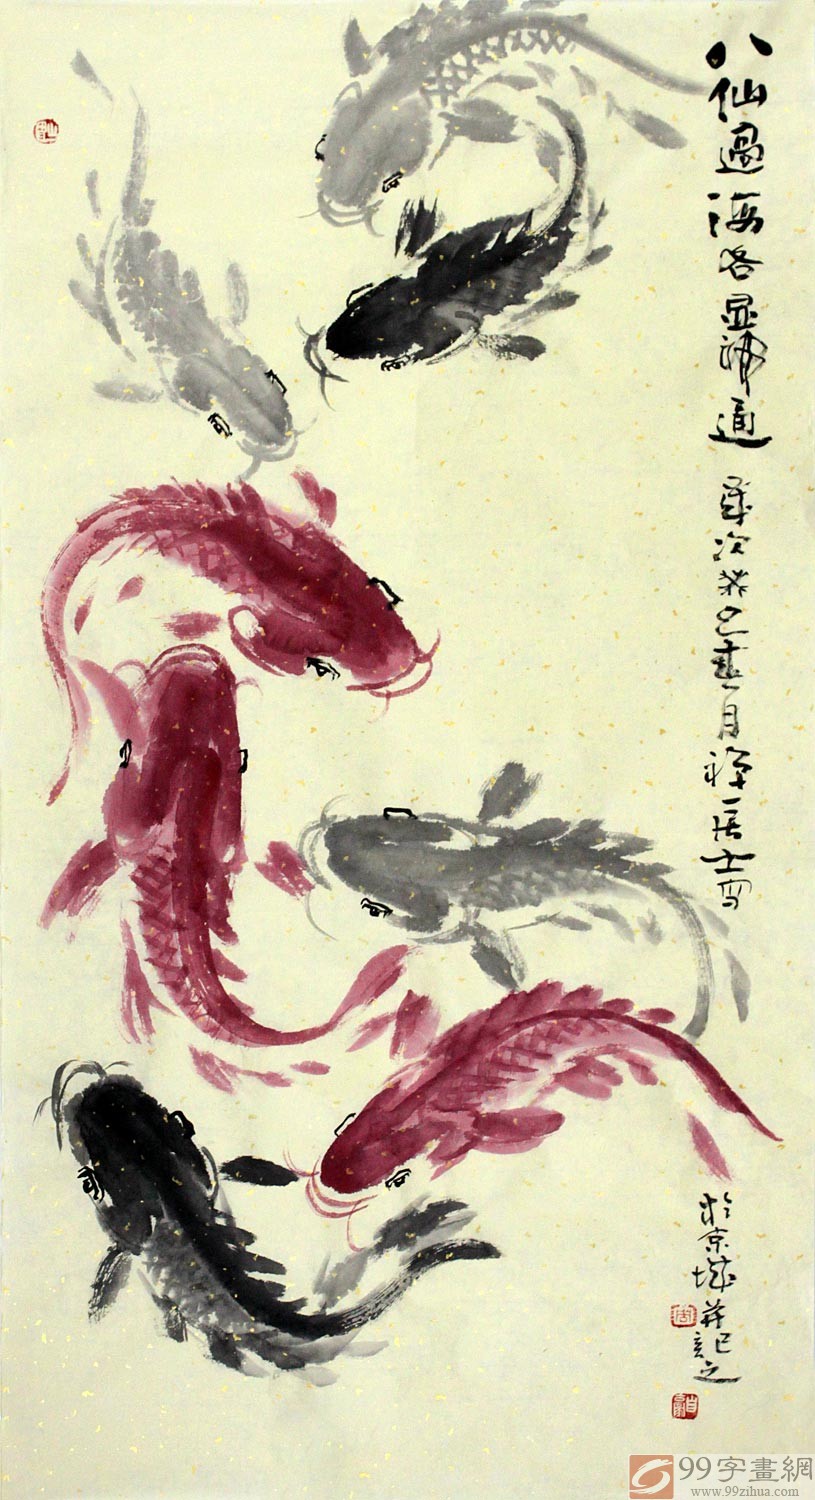 八仙過海各显神通
岁次癸巳春月禅一居士写
於京城并记之
99字畫網
www.99zihua.com